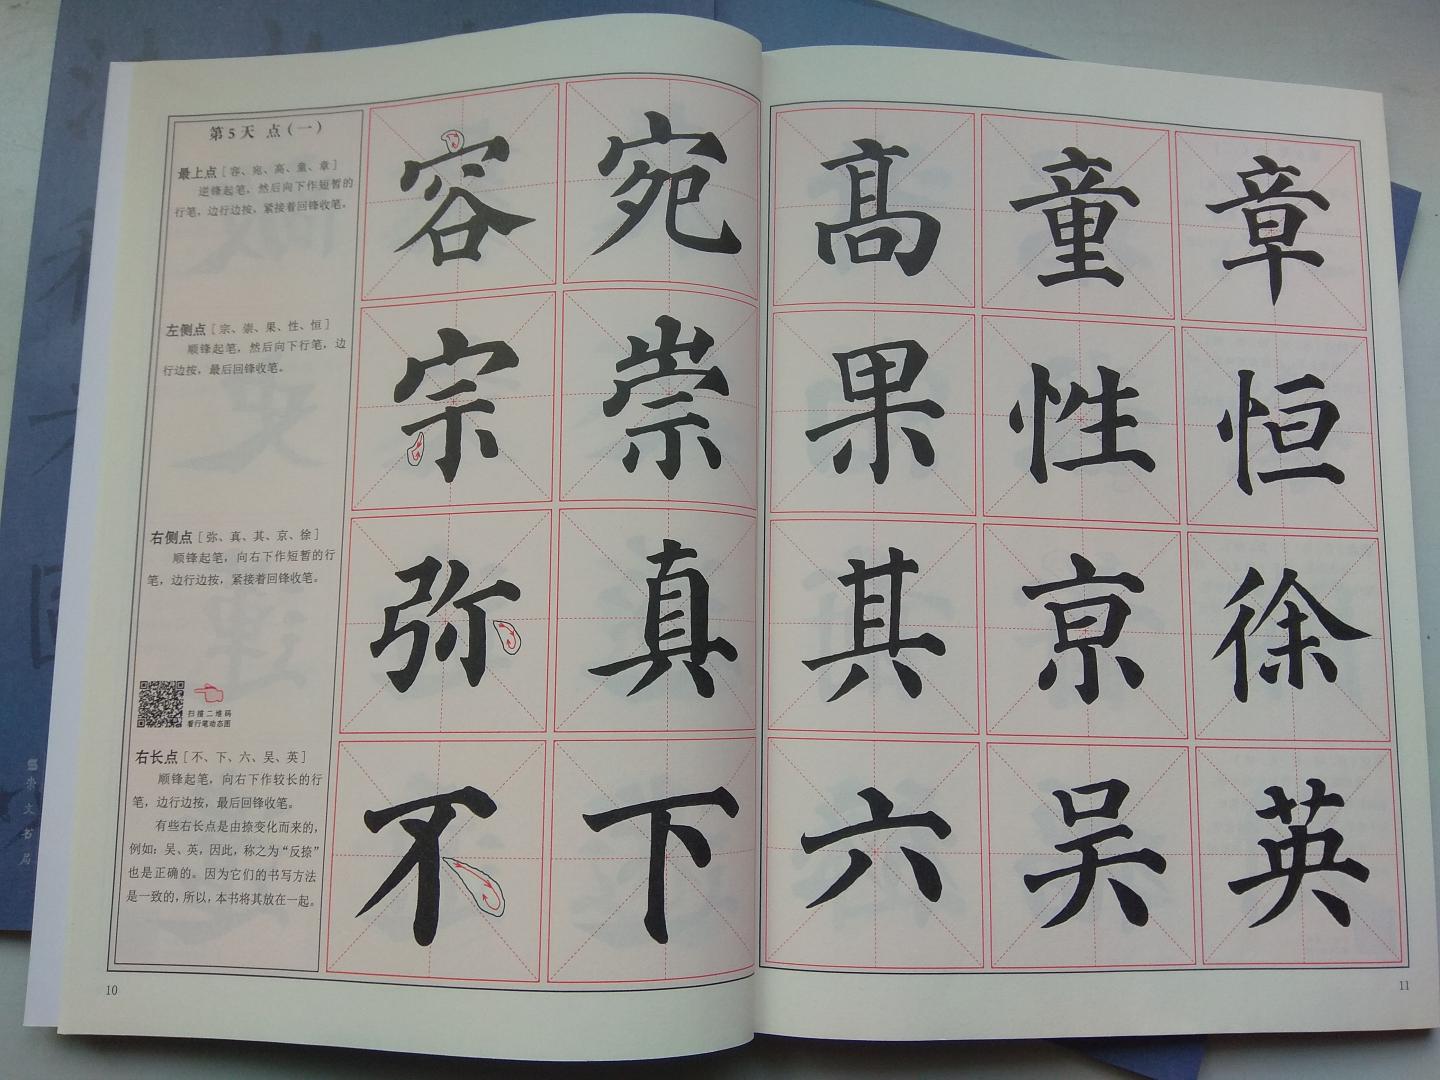 第5天 点(一)
最上点[容、宛、高、童、章]
逆锋起笔，然后向下作短暂的
行笔，边行边按，紧接着回锋收笔。
左侧点[宗、崇、果、性、恒]
顺锋起笔，然后向下行笔，边
行边按，最后回锋收笔。
右侧点[弥、真、其、京、徐]
顺锋起笔，向右下作短暂的行
笔，边行边按，紧接着回锋收笔。
扫描二维码
看行笔动态图
右长点[不、下、六、吴、英]
顺锋起笔，向右下作较长的行
笔，边行边按，最后回锋收笔。
有些右长点是由捺变化而来的，
例如：吴、英，因此，称之为“反捺”
也是正确的。因为它们的书写方法
是一致的，所以，本书将其放在一起。
容宛髙童章
宗崇果性恒
弥真其京徐
不下六吴英
10
11
崇文书局